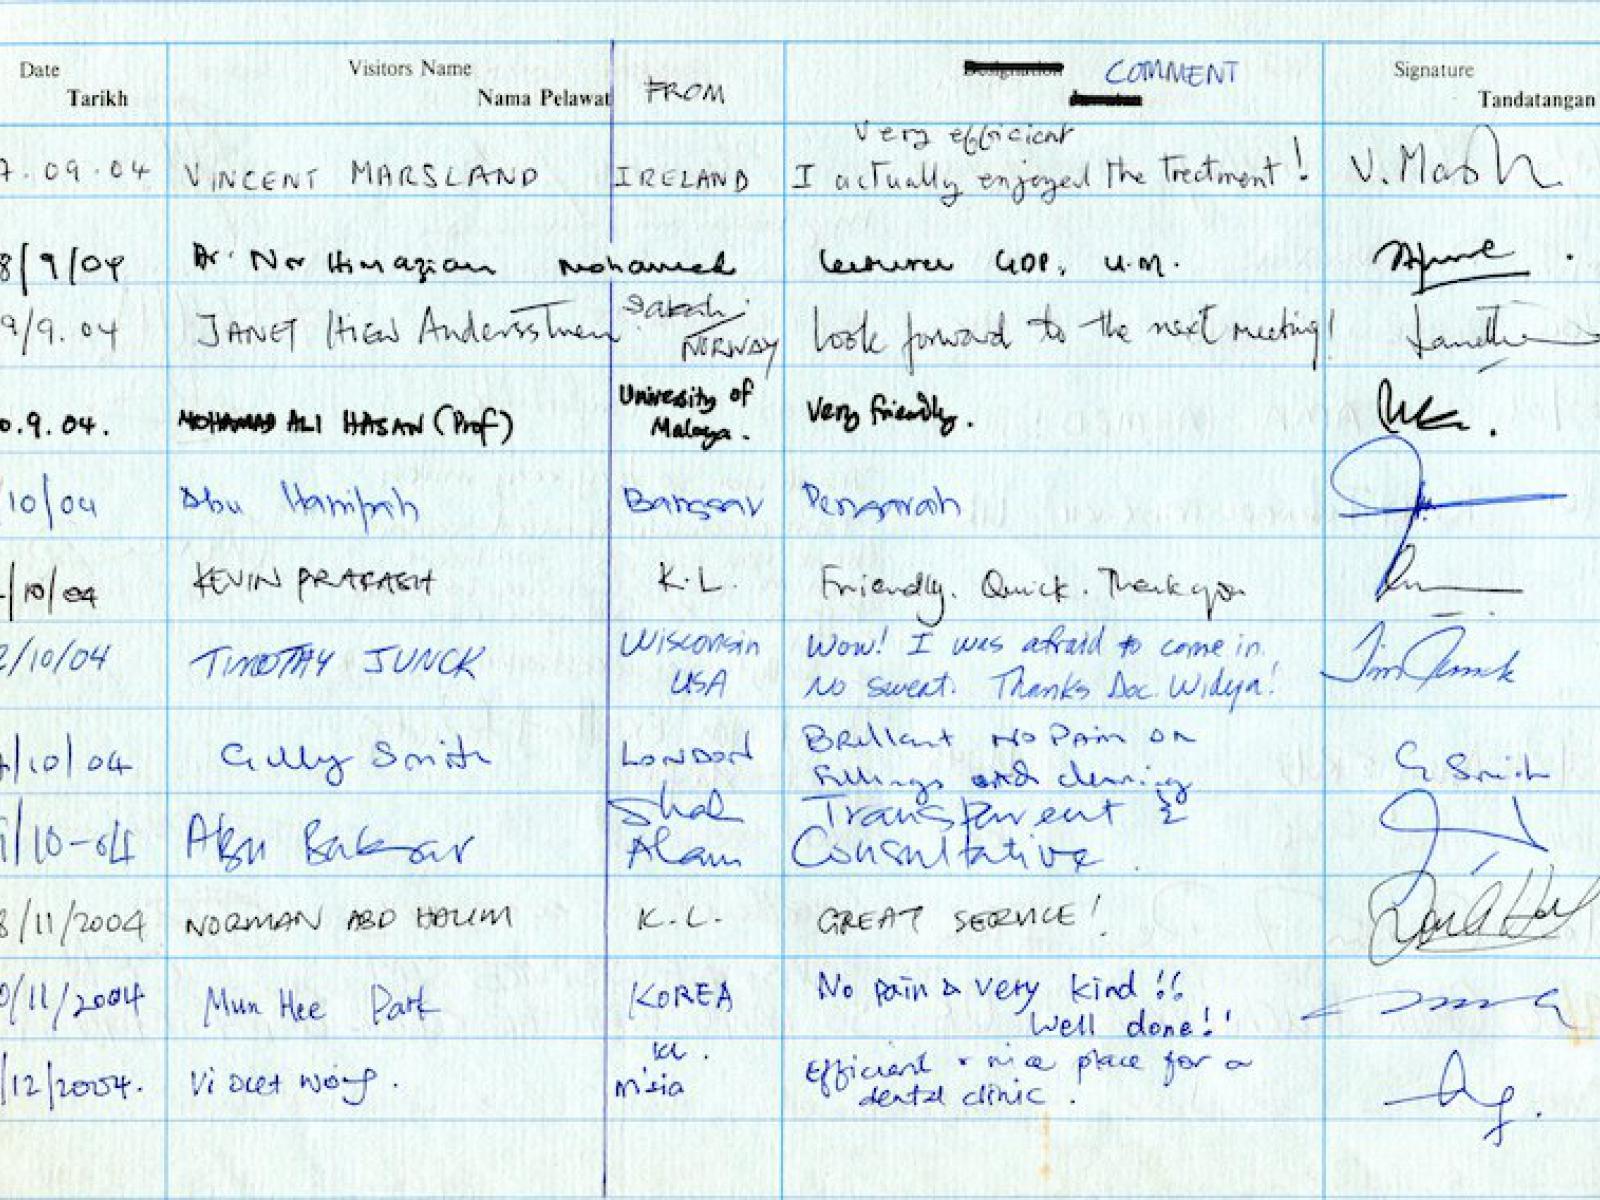 Date Visitors Name COMMENT Signature
Tarikh Nama Pelawat FROM Tandatangan
Very efficient
7.09.04 VINCENT MARSLAND IRELAND I actually enjoyed the treatment! V. Mash
8/9/04 Dr. Nor Himazian Mohamed Lecturer GDP, U.M.
9/9.04 JANET HIEW Sabah/ NORWAY Look forward to the next meeting!
0.9.04. MOHAMAD ALI HASAN (Prof) University of Malaya. Very friendly.
/10/04 Abu Hanipah Bangsar Pengarah
/10/04 KEVIN PRAKASH K.L. Friendly. Quick. Thank you
2/10/04 TIMOTHY JUNCK Wisconsin Wow! I was afraid to come in.
USA No sweat. Thanks Doc. Widya! Tim Junck
/10/04 Gilly Smith LONDON Brilliant no pain on
fillings and cleaning G Smith
/10-04 Abu Bakar Shah Transparent &
Alam Consultative.
8/11/2004 NORMAN ABD HALIM K.L. GREAT SERVICE!
0/11/2004 Mun Hee Park KOREA No pain & very kind!!
Well done!!
KL. Efficient & nice place for a
/12/2004. Violet Wong. M'sia dental clinic.